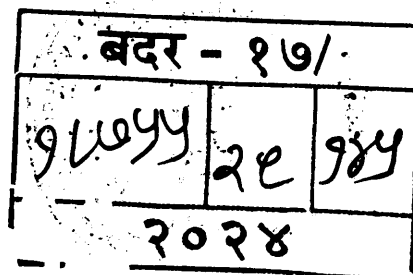 बदर - १७/
१८७५५ २९ १४५
२०२४